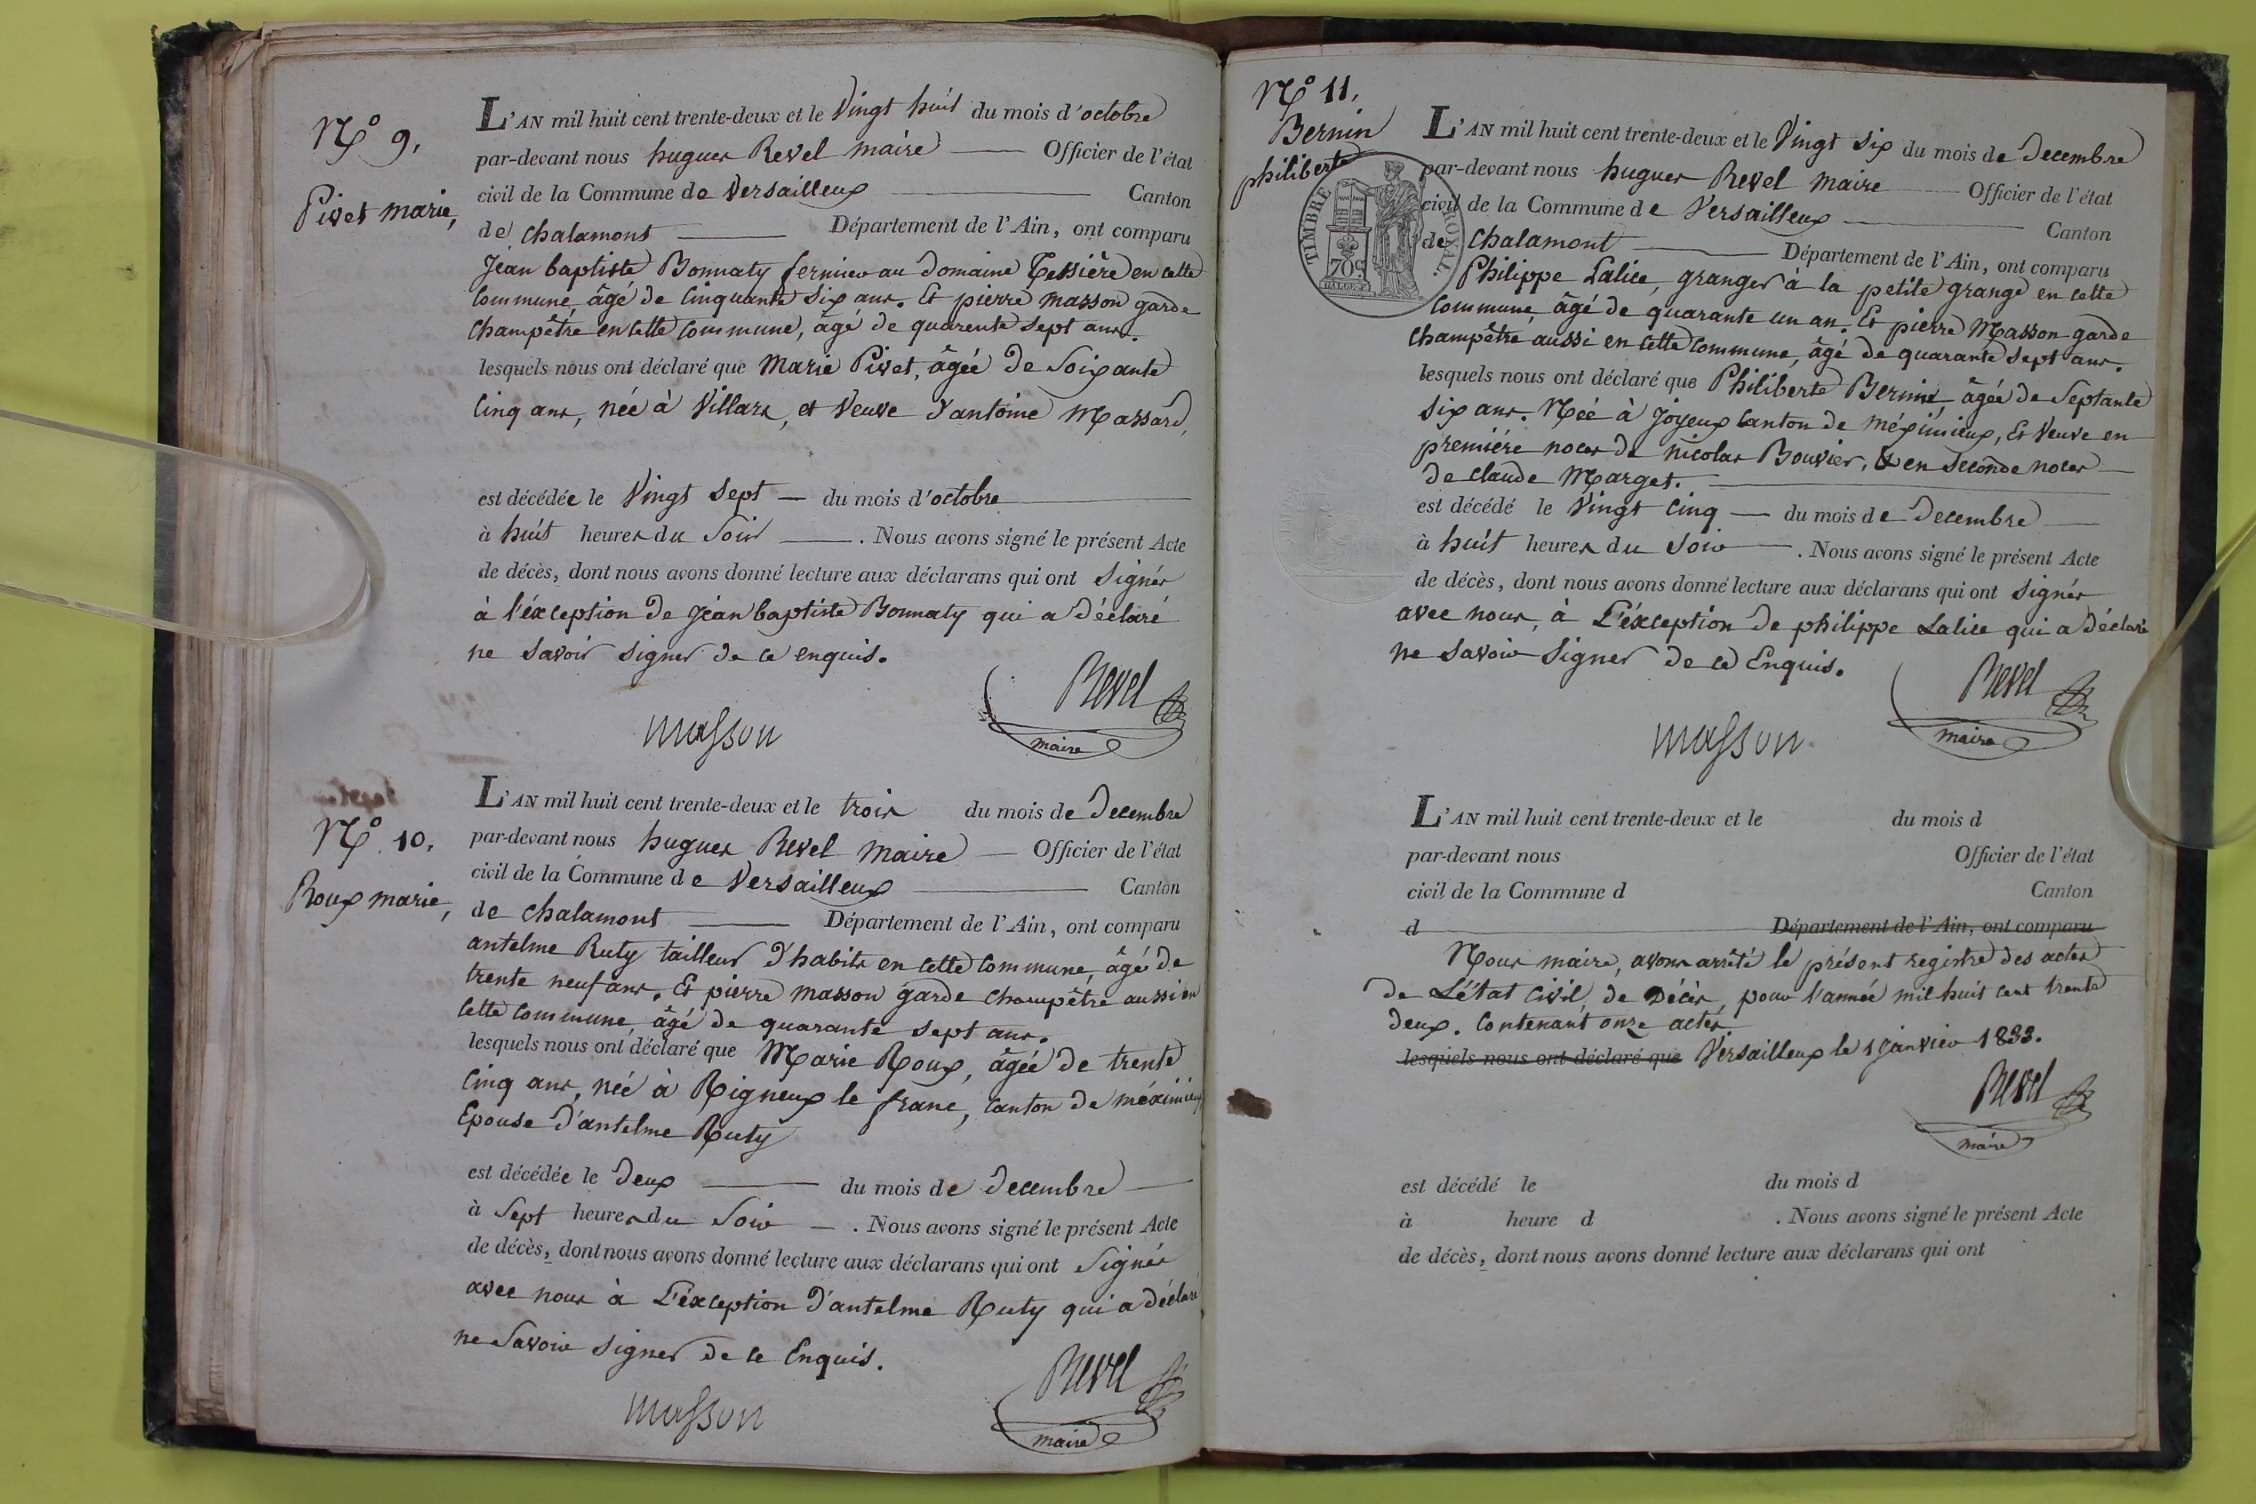 N.º 9,
Pivet marie,
L'AN mil huit cent trente-deux et le Vingt huit du mois d'octobre
par-devant nous hugues Revel maire Officier de l'état
civil de la Commune de Versailleux Canton
de chalamont Département de l'Ain, ont comparu
Jean baptiste Bonnaty fermier au Domaine Tessière en cette
Commune, âgé de Cinquante Six ans. Et pierre masson garde
champêtre en cette commune, âgé de quarente sept ans.
lesquels nous ont déclaré que Marie Pivet, âgée de Soixante
Cinq ans, née à Villars, et Veuve d'antoine Massard,
est décédée le Vingt Sept du mois d'octobre
à huit heures du Soir . Nous avons signé le présent Acte
de décès, dont nous avons donné lecture aux déclarans qui ont Signés
à l'éxception de Jean baptiste Bonnaty qui a déclaré
ne savoir signer de ce enquis.
Revel
masson
maire
N.º 10,
Roux marie,
L'AN mil huit cent trente-deux et le trois du mois de Decembre
par-devant nous hugues Revel Maire Officier de l'état
civil de la Commune de Versailleux Canton
de chalamont Département de l'Ain, ont comparu
antelme Ruty tailleur d'habits en cette commune, âgé de
trente neuf ans. Et pierre masson garde champêtre aussi en
cette commune, âgé de quarante sept ans.
lesquels nous ont déclaré que Marie Roux, âgée de trente
Cinq ans, née à Rigneux le franc, canton de méximieux
Epouse d'antelme Ruty
est décédée le Deux du mois de Decembre
à Sept heures du Soir . Nous avons signé le présent Acte
de décès, dont nous avons donné lecture aux déclarans qui ont Signés
avec nous à L'éxception d'antelme Ruty qui a déclaré
ne Savoir signer de ce Enquis.
Revel
masson
maire
N.º 11,
Bernin
philiberte
TIMBRE ROYAL.
70c
L'AN mil huit cent trente-deux et le Vingt Six du mois de Decembre
par-devant nous hugues Revel Maire Officier de l'état
civil de la Commune de Versailleux Canton
de Chalamont Département de l'Ain, ont comparu
Philippe Lalice, granger à la petite grange en cette
Commune âgé de quarante un an. Et pierre Masson garde
champêtre aussi en cette commune, âgé de quarante sept ans.
lesquels nous ont déclaré que Philiberte Bernin âgée de Septante
Six ans. Née à Joyeux Canton de méximieux, Et Veuve en
première noces de nicolas Bouvier, & en Seconde noces
de claude Marget.
est décédé le Vingt Cinq du mois de Decembre
à huit heures du Soir . Nous avons signé le présent Acte
de décès, dont nous avons donné lecture aux déclarans qui ont Signés
avec nous, à L'éxception de philippe Lalice qui a déclaré
ne savoir signer de ce Enquis.
Revel
masson
maire
L'AN mil huit cent trente-deux et le du mois d
par-devant nous Officier de l'état
civil de la Commune d Canton
d Département de l'Ain, ont comparu
Nous maire, avons arrêté le présent registre des actes
de L'état Civil, de Décès, pour l'année mil huit cent trente
deux. Contenant onze actes.
lesquels nous ont déclaré que Versailleux le 1 janvier 1833.
Revel
maire
est décédé le du mois d
à heure d . Nous avons signé le présent Acte
de décès, dont nous avons donné lecture aux déclarans qui ont